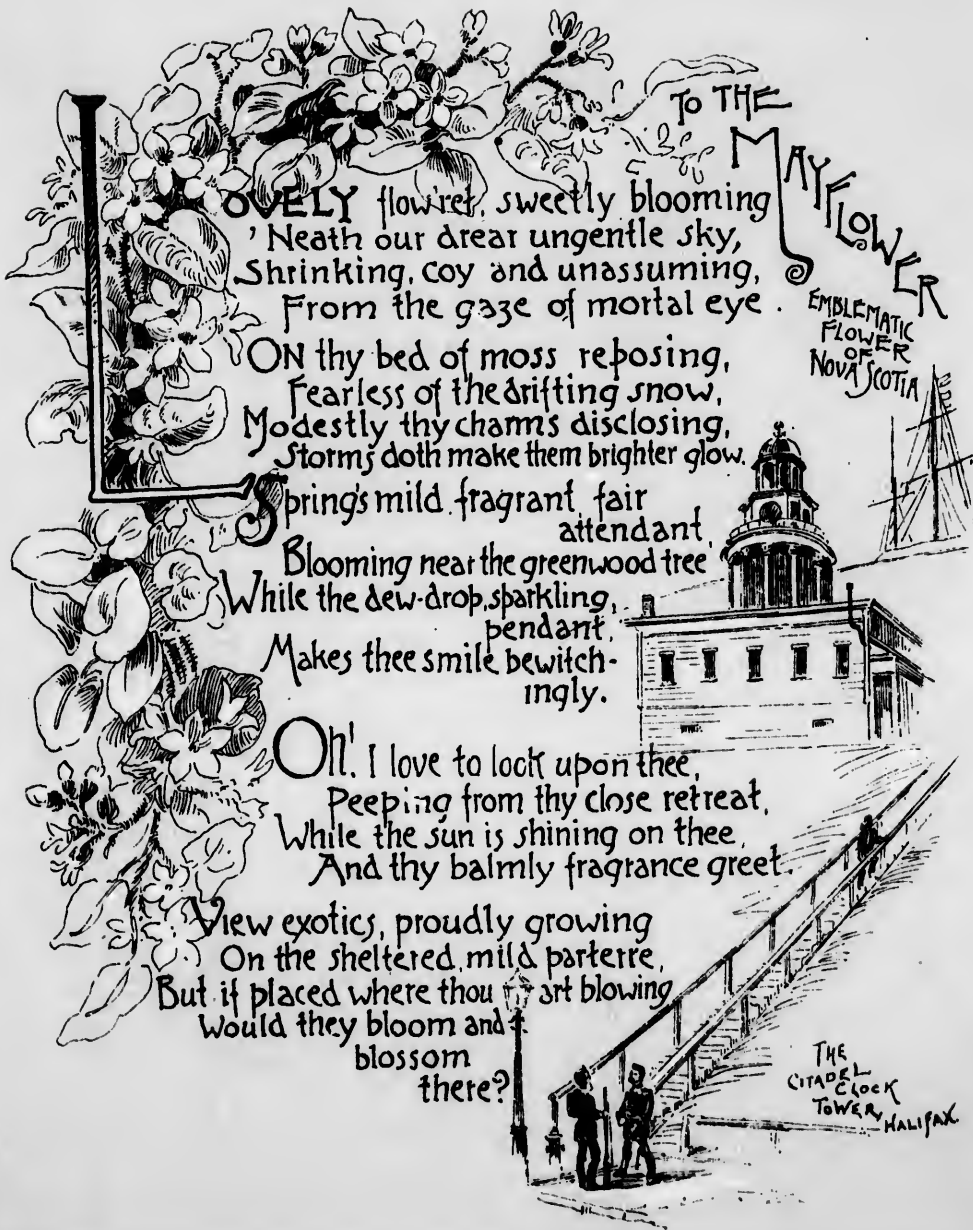 TO THE
MAYFLOWER
EMBLEMATIC
FLOWER
OF
NOVA SCOTIA
LOVELY flow'ret, sweetly blooming
'Neath our drear ungentle sky,
Shrinking, coy and unassuming,
From the gaze of mortal eye.
ON thy bed of moss reposing,
Fearless of the drifting snow,
Modestly thy charms disclosing,
Storms doth make them brighter glow.
Spring's mild, fragrant, fair
attendant,
Blooming near the greenwood tree
While the dew-drop, sparkling,
pendant,
Makes thee smile bewitch-
ingly.
Oh! I love to lock upon thee,
Peeping from thy close retreat,
While the sun is shining on thee,
And thy balmly fragrance greet.
View exotics, proudly growing
On the sheltered, mild parterre,
But if placed where thou art blowing
Would they bloom and
blossom
there?
THE
CITADEL
CLOCK
TOWER,
HALIFAX